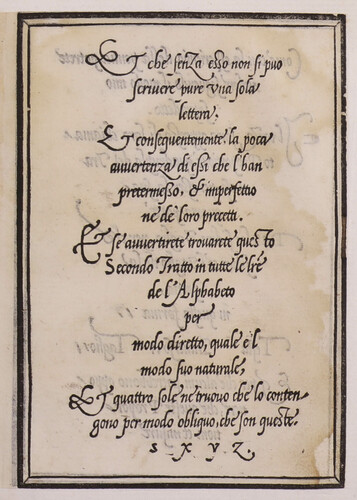 Et che senza esso non si puo
scrivere pure vna sola
lettera.
Et conseguentemente la poca
auuertenza di essi che l'han
pretermesso, & imperfettio
ne de' loro precetti.
E se auuertirete trouarete questo
Secondo Tratto in tutte le lr̃e
de l'Alphabeto
per
modo diretto, quale è'l
modo suo naturale,
Et quattro sole ne truouo che lo conten-
gono per modo obliquo, che son queste.
s · x · y · z ·